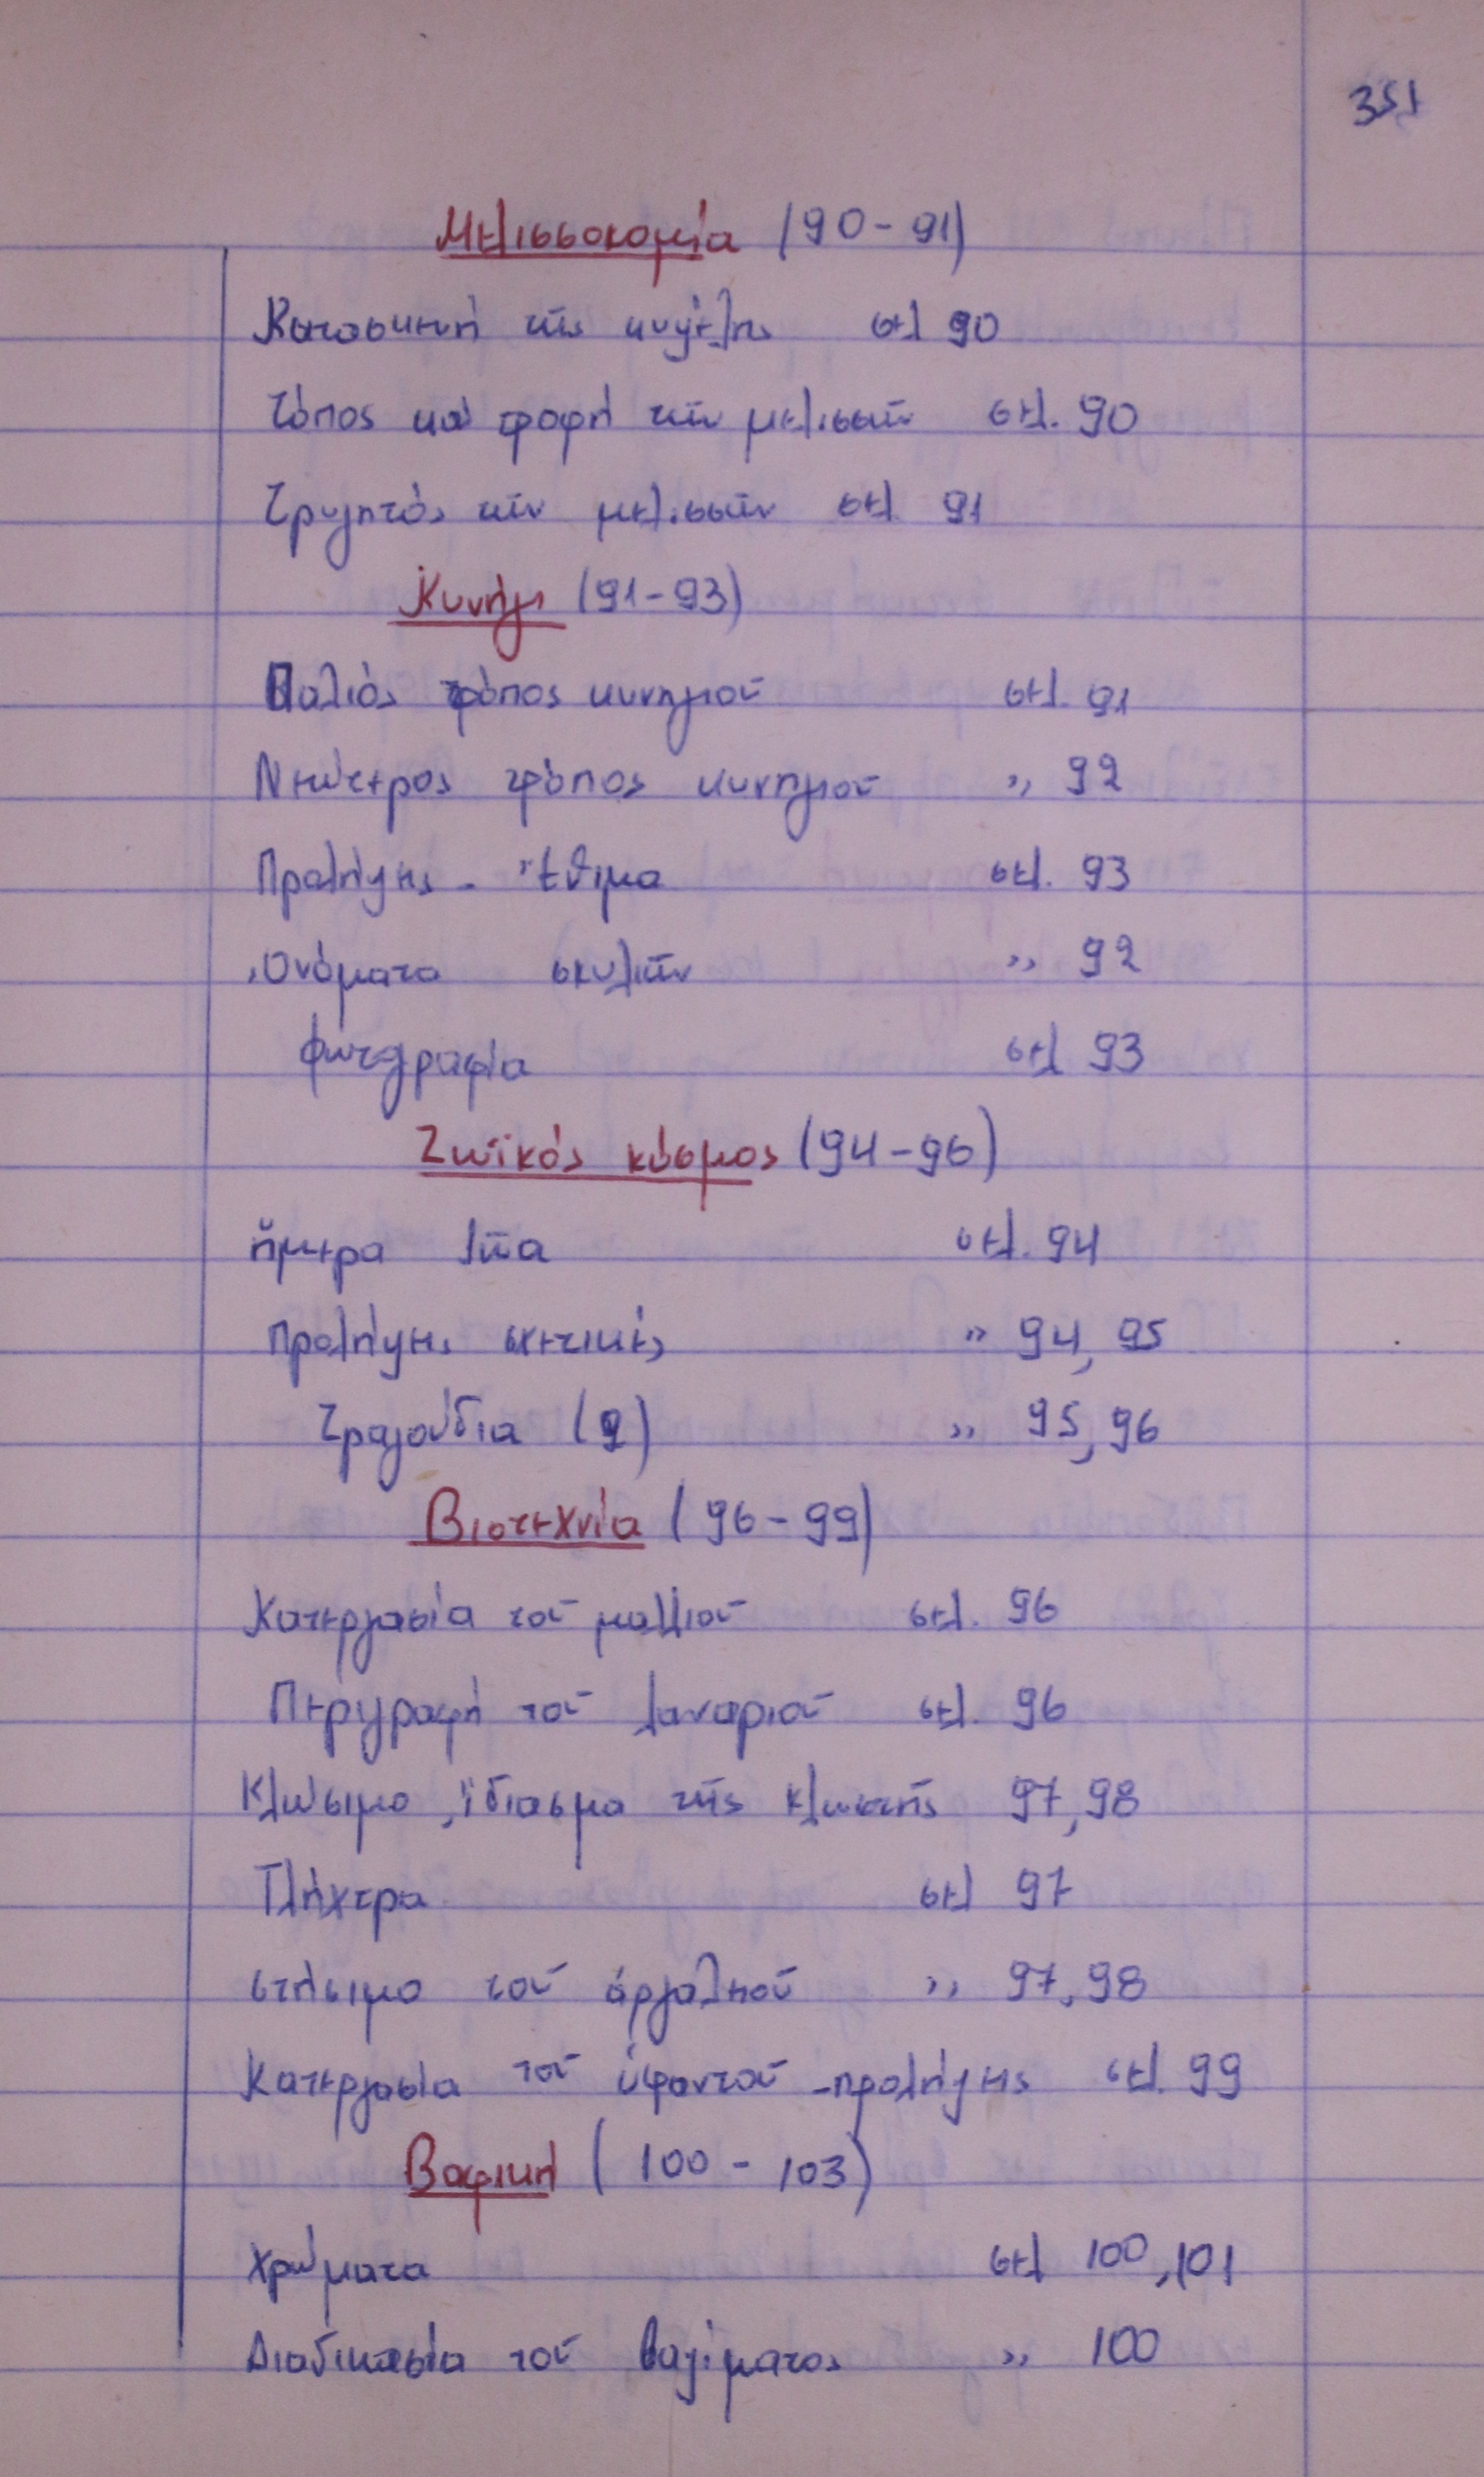 351
Μελισσοκομία (90-91)
Κατασκευή τῆς κυψέλης σελ 90
Τόπος καί τροφή τῶν μελισσῶν σελ. 90
Τρυγητός τῶν μελισσῶν σελ. 91
Κυνήγι (91-93)
Παλιός τρόπος κυνηγιοῦ σελ. 91
Νεώτερος τρόπος κυνηγιοῦ ,, 92
Προλήψεις - Ἔθιμα σελ. 93
Ὀνόματα σκυλιῶν ,, 92
Φωτογραφία σελ 93
Ζωϊκός κόσμος (94-96)
ἥμερα ζῶα σελ. 94
Προλήψεις σχετικές ,, 94, 95
Τραγούδια (9) ,, 95, 96
Βιοτεχνία (96-99)
Κατεργασία τοῦ μαλλιοῦ σελ. 96
Περιγραφή τοῦ λαναριοῦ σελ. 96
Κλώσιμο, ἴδιασμα τῆς κλωστῆς 97, 98
Πλήχτρα σελ 97
στήσιμο τοῦ ἀργαλειοῦ ,, 97, 98
Κατεργασία τοῦ ὑφαντοῦ - προλήψεις σελ. 99
Βαφική (100 - 103)
Χρώματα σελ 100, 101
Διαδικασία τοῦ βαψίματος ,, 100